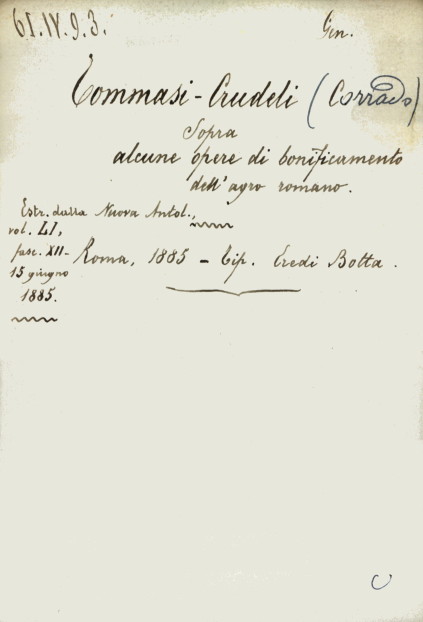 61.IV.9.3.
Gen.
Tommasi-Crudeli (Corrado)
Sopra
alcune opere di bonificamento
dell'agro romano.
Estr. dalla Nuova Antol.,
vol. LI,
fasc. XII-
15 giugno
1885.
Roma, 1885 - Tip. Eredi Botta.